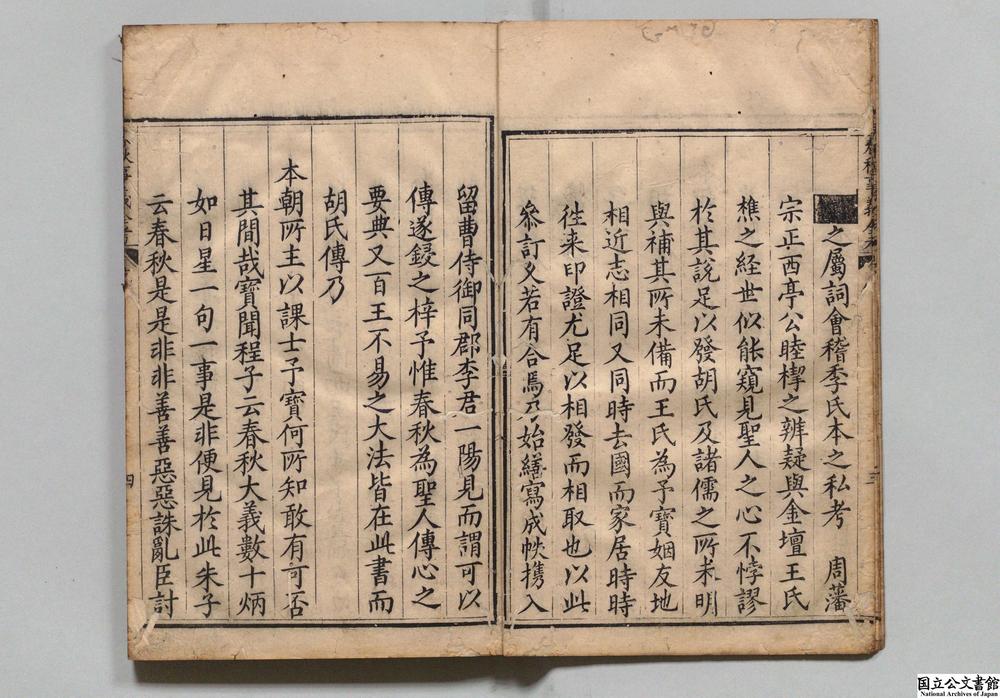 之屬詞會稽季氏本之私考　周藩
宗正西亭公睦㮮之辨疑與金壇王氏
樵之經世似能窺見聖人之心不悖謬
於其說足以發胡氏及諸儒之所未明
與補其所未備而王氏為予寶姻友地
相近志相同又同時去國而家居時時
往来印證尤足以相發而相取也以此
叅訂久若有合焉乃始繕寫成帙携入
留曹侍御同郡李君一陽見而謂可以
傳遂鋟之梓予惟春秋為聖人傳心之
要典又百王不易之大法皆在此書而
胡氏傳乃
本朝所主以課士予寶何所知敢有可否
其間哉寶聞程子云春秋大義數十炳
如日星一句一事是非便見於此朱子
云春秋是是非非善善惡惡誅亂臣討
四
国立公文書館
National Archives of Japan